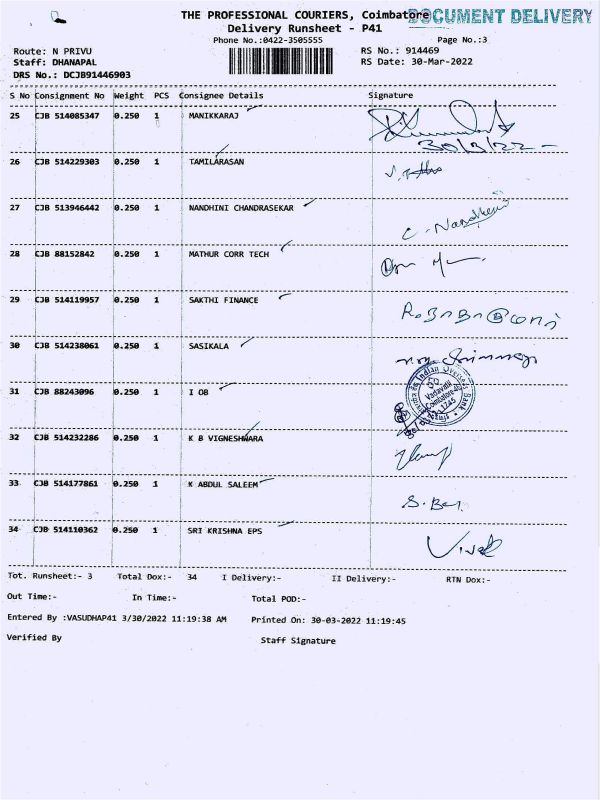 THE PROFESSIONAL COURIERS, Coimbatore DOCUMENT DELIVERY
Delivery Runsheet - P41
Phone No.:0422-3505555 Page No.:3
Route: N PRIVU RS No.: 914469
Staff: DHANAPAL RS Date: 30-Mar-2022
DRS No.: DCJB91446903
S No Consignment No Weight PCS Consignee Details Signature
25 CJB 514085347 0.250 1 MANIKKARAJ
30/3/22
26 CJB 514229303 0.250 1 TAMILARASAN
27 CJB 513946442 0.250 1 NANDHINI CHANDRASEKAR
C. Nandhini
28 CJB 88152842 0.250 1 MATHUR CORR TECH
29 CJB 514119957 0.250 1 SAKTHI FINANCE
30 CJB 514238061 0.250 1 SASIKALA
31 CJB 88243096 0.250 1 I OB
Indian Overseas Bank
Vadavalli
32 CJB 514232286 0.250 1 K B VIGNESHWARA
33 CJB 514177861 0.250 1 K ABDUL SALEEM
34 CJB 514110362 0.250 1 SRI KRISHNA EPS
Vivek
Tot. Runsheet:- 3 Total Dox:- 34 I Delivery:- II Delivery:- RTN Dox:-
Out Time:- In Time:- Total POD:-
Entered By :VASUDHAP41 3/30/2022 11:19:38 AM Printed On: 30-03-2022 11:19:45
Verified By Staff Signature